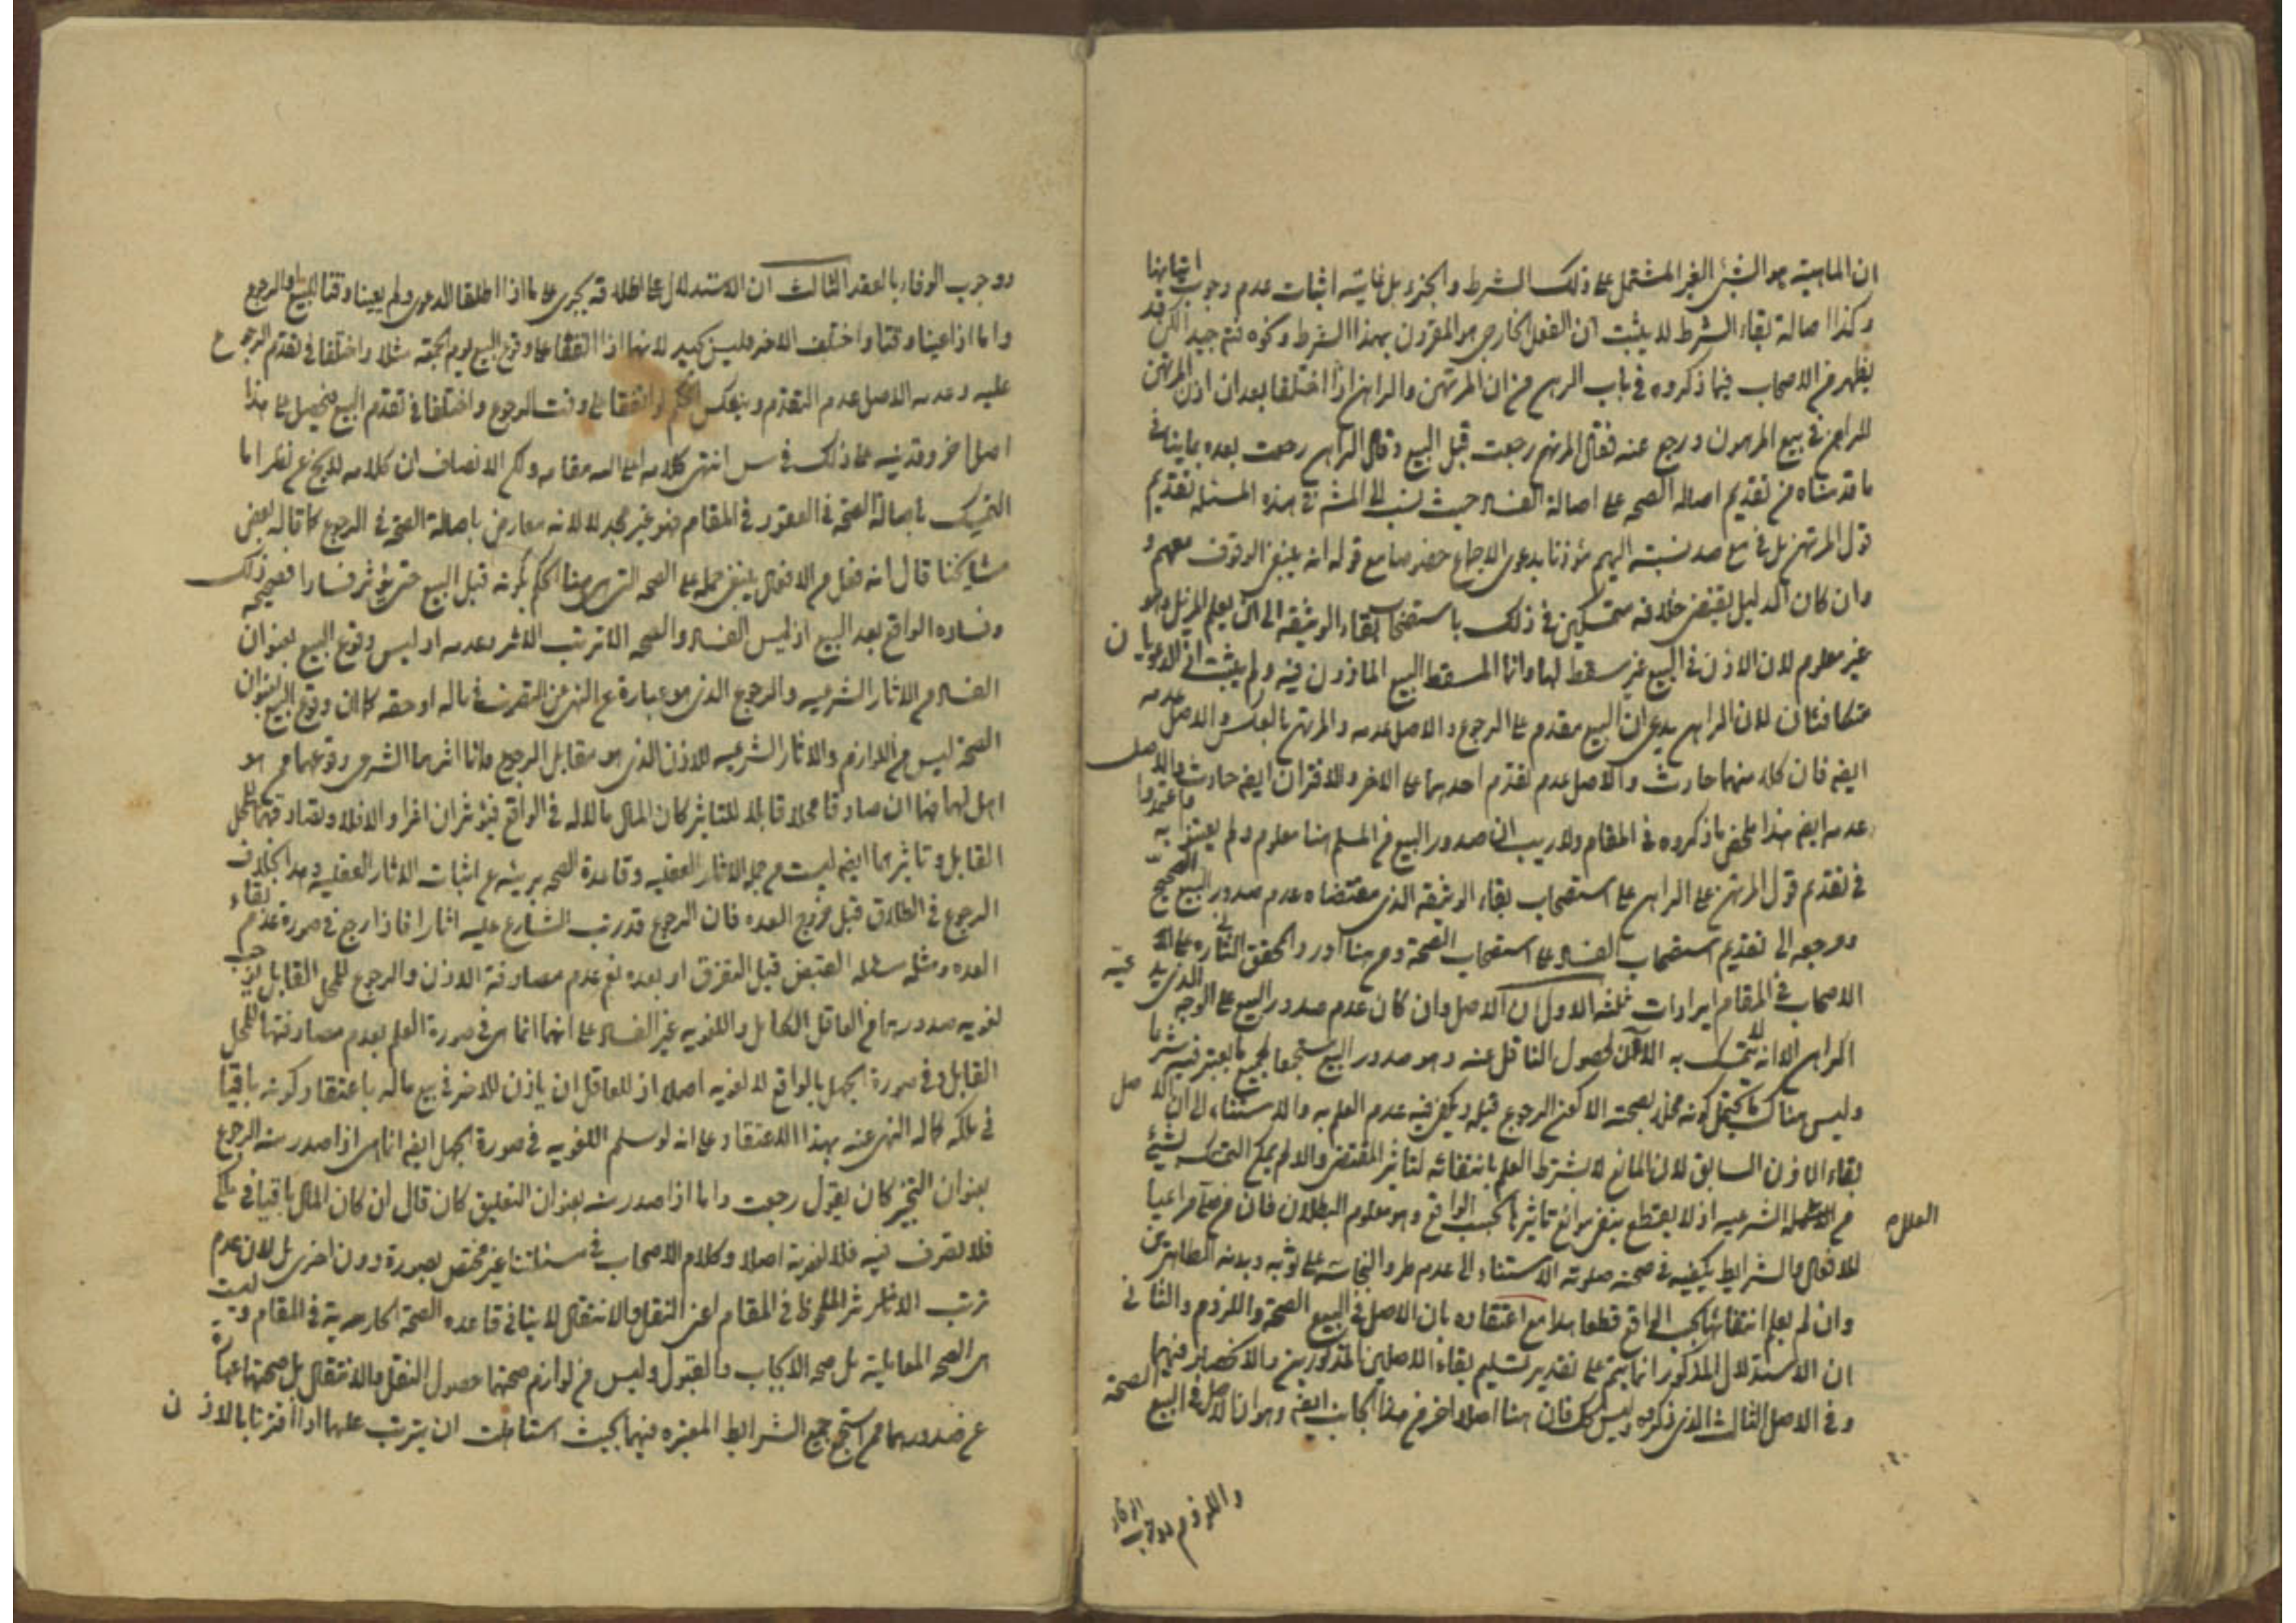 ان الماهية هو الشئ الغير المشتمل على ذلك الشرط والجزء بل غايته اثبات عدم وجوب اتيانها
وكذا اصالة بقاء الشرط لا يثبت ان الفعل الخارجى هو المقرون بهذا الشرط ونحوه فتم جيدا لكن قد
يظهر من الاصحاب فيما ذكروه فى باب الرهن من ان المرتهن والراهن اذا اختلفا بعد ان اذن المرتهن
للراهن فى بيع المرهون ورجع عنه فقال المرتهن رجعت قبل البيع وقال الراهن رجعت بعده ما ينافى
ما قدمناه من تقديم اصالة الصحه على اصالة الفساد حيث نسب الى المشهور فى هذه المسئله تقديم
قول المرتهن بل فى مع صد نسبته اليهم مؤذنا بدعوى الاجماع خصوصا مع قوله انه ينبغى الوقوف معهم و
وان كان الدليل يقتضى خلافه متمسكين فى ذلك باستصحاب بقاء الوثيقه الى ان يعلم المزيل وهو
غير معلوم لان الاذن فى البيع غير مسقط لها وانما المسقط البيع الماذون فيه ولم يثبت اذ الدعويان
متكافئتان لان الراهن يدعى ان البيع مقدم على الرجوع والاصل عدمه والمرتهن بالعكس والاصل عدمه
ايضه فان كلا منهما حادث والاصل عدم تقدم احدهما على الاخر والاقتران ايضه حادث والاصل
عدمه ايضه هذا ملخص ما ذكروه فى المقام ولا ريب ان صدور البيع من المسلم هنا معلوم ولم يعتبر به واعتمدوا
فى تقديم قول المرتهن على الراهن على استصحاب بقاء الوثيقه الذى مقتضاه عدم صدور البيع الصحيح
ومرجعه الى تقديم استصحاب الفساد على استصحاب الصحة ومن هنا اورد المحقق الثانى ره على
الاصحاب فى المقام ايرادات ثلثه الاول ان الاصل وان كان عدم صدور البيع على الوجه الذى يدعيه
الراهن الا انه لا يتمسك به الان لحصول الناقل عنه وهو صدور البيع مستجمعا لجميع ما يعتبر فيه شرعا
وليس هناك ما يحتمل كونه مخلا بصحته الا كون الرجوع قبله ويكفى فيه عدم العلم به والاستناد الى ان الاصل
بقاء الاذن السابق لان المانع لا يشترط العلم بانتفائه لتاثير المقتضى والا لم يمكن التمسك بشئ
من العلل الشرعيه اذ لا يقطع بنفى موانع تاثيرها بحسب الواقع وهو معلوم البطلان فان من صلى مراعيا
العلل ه
للافعال والشرايط يكفيه فى صحة صلوته الاستناد الى عدم طرو النجاسة على ثوبه وبدنه الطاهرين
وان لم يعلم انتفائها بحسب الواقع قطعا هذا مع اعتقاده بان الاصل فى البيع الصحة واللزوم والثانى
ان الاستدلال المذكور انما يتم على تقدير تسليم بقاء الاصلين المذكورين والانحصار فيهما
وفى الاصل الثالث الذى ذكروه وليس كك فان هنا اصلا اخر من هذا الجانب ايضه وهو ان الاصل فى البيع الصحة
واللزوم ووجوب الوفاء
ووجوب الوفاء بالعقد الثالث ان الاستدلال على اطلاقه يجرى على ما اذا اطلقا الدعوى ولم يعينا وقتا للبيع والرجوع
واما اذا عينا وقتا واختلف الاخر فليس كبير لانهما اذا اتفقا على وقوع البيع يوم الجمعه مثلا واختلفا فى تقدم الرجوع
عليه وعدمه الاصل عدم التقدم وينعكس الحكم لو اتفقا على وقت الرجوع واختلفا فى تقدم البيع فيحصل على هذا
اصل اخر وقد نبه على ذلك فى س انتهى كلامه اعلى الله مقامه ولكن الانصاف ان كلامه لا يخ عن نظر اما
التمسك باصالة الصحه فى العقود فى المقام فهو غير مجد لا لانه معارض باصالة الصحة فى الرجوع كما قاله بعض
مشايخنا قال انه فعل من الافعال ينبغى حمله على الصحه التى هى هنا الحكم بكونه قبل البيع حتى يؤثر فسادا فصحيحه ذلك
وفساده الواقع بعد البيع اذ ليس الفساد والصحه الا ترتب الاثر وعدمه اذ ليس وقوع البيع بعنوان
الفساد من الاثار الشرعيه والرجوع الذى هو عبارة عن النهى عن التصرف فى ماله او حقه كما ان وقوع البيع بعنوان
الصحة ليس من اللوازم والاثار الشرعيه للاذن الذى هو مقابل الرجوع وانما اثرهما الشرعى وقوعهما من هو
اهل لهما فان صادفا محلا قابلا للتاثير كان المال ماله فى الواقع فيؤثران اثرا والا فلا وتصادفهما للمحل
القابل وتاثيرهما ايضه ليست من جملة الاثار العقليه وقاعدة الصحه بريئه عن اثبات الاثار العقليه وهذا بخلاف
الرجوع فى الطلاق قبل خروج العده فان الرجوع قد رتب الشارع عليه اثارا فاذا رجع فى صورة عدم بقاء
العده ومثله مسئله القبض قبل التفرق او بعده نعم عدم مصادفة الاذن والرجوع للمحل القابل يوجب
لغويه صدورهما من العاقل الكامل واللغويه غير الفساد على انهما انما هى فى صورة العلم بعدم مصادفتهما للمحل
القابل وفى صورة الجهل بالواقع لا لغويه اصلا اذ للعاقل ان ياذن للاخر فى بيع ماله باعتقاد كونه باقيا
فى ملكه كما له النهى عنه بهذا الاعتقاد على انه لو سلم اللغويه فى صورة الجهل ايضه انما هى اذا صدر منه الرجوع
بعنوان التنجيز كان يقول رجعت واما اذا صدر منه بعنوان التعليق كان قال ان كان المال باقيا فى ملكى
فلا تصرف فيه فلا لغوية اصلا وكلام الاصحاب فى مسئلتنا غير مختص بصورة دون اخرى بل لان عدم
ترتب الاثر الملحوظ فى المقام اعنى النقل والانتقال لا ينافى قاعده الصحة الجاريه فى المقام وليست
هى الصحه المعامليه بل صحه الايجاب والقبول وليس من لوازم صحتهما حصول النقل والانتقال بل صحتهما عبارة
عن صدورهما ممن استجمع جميع الشرايط المعتبره فيهما بحيث ان يترتب عليهما اذا اقترنا بالاذن